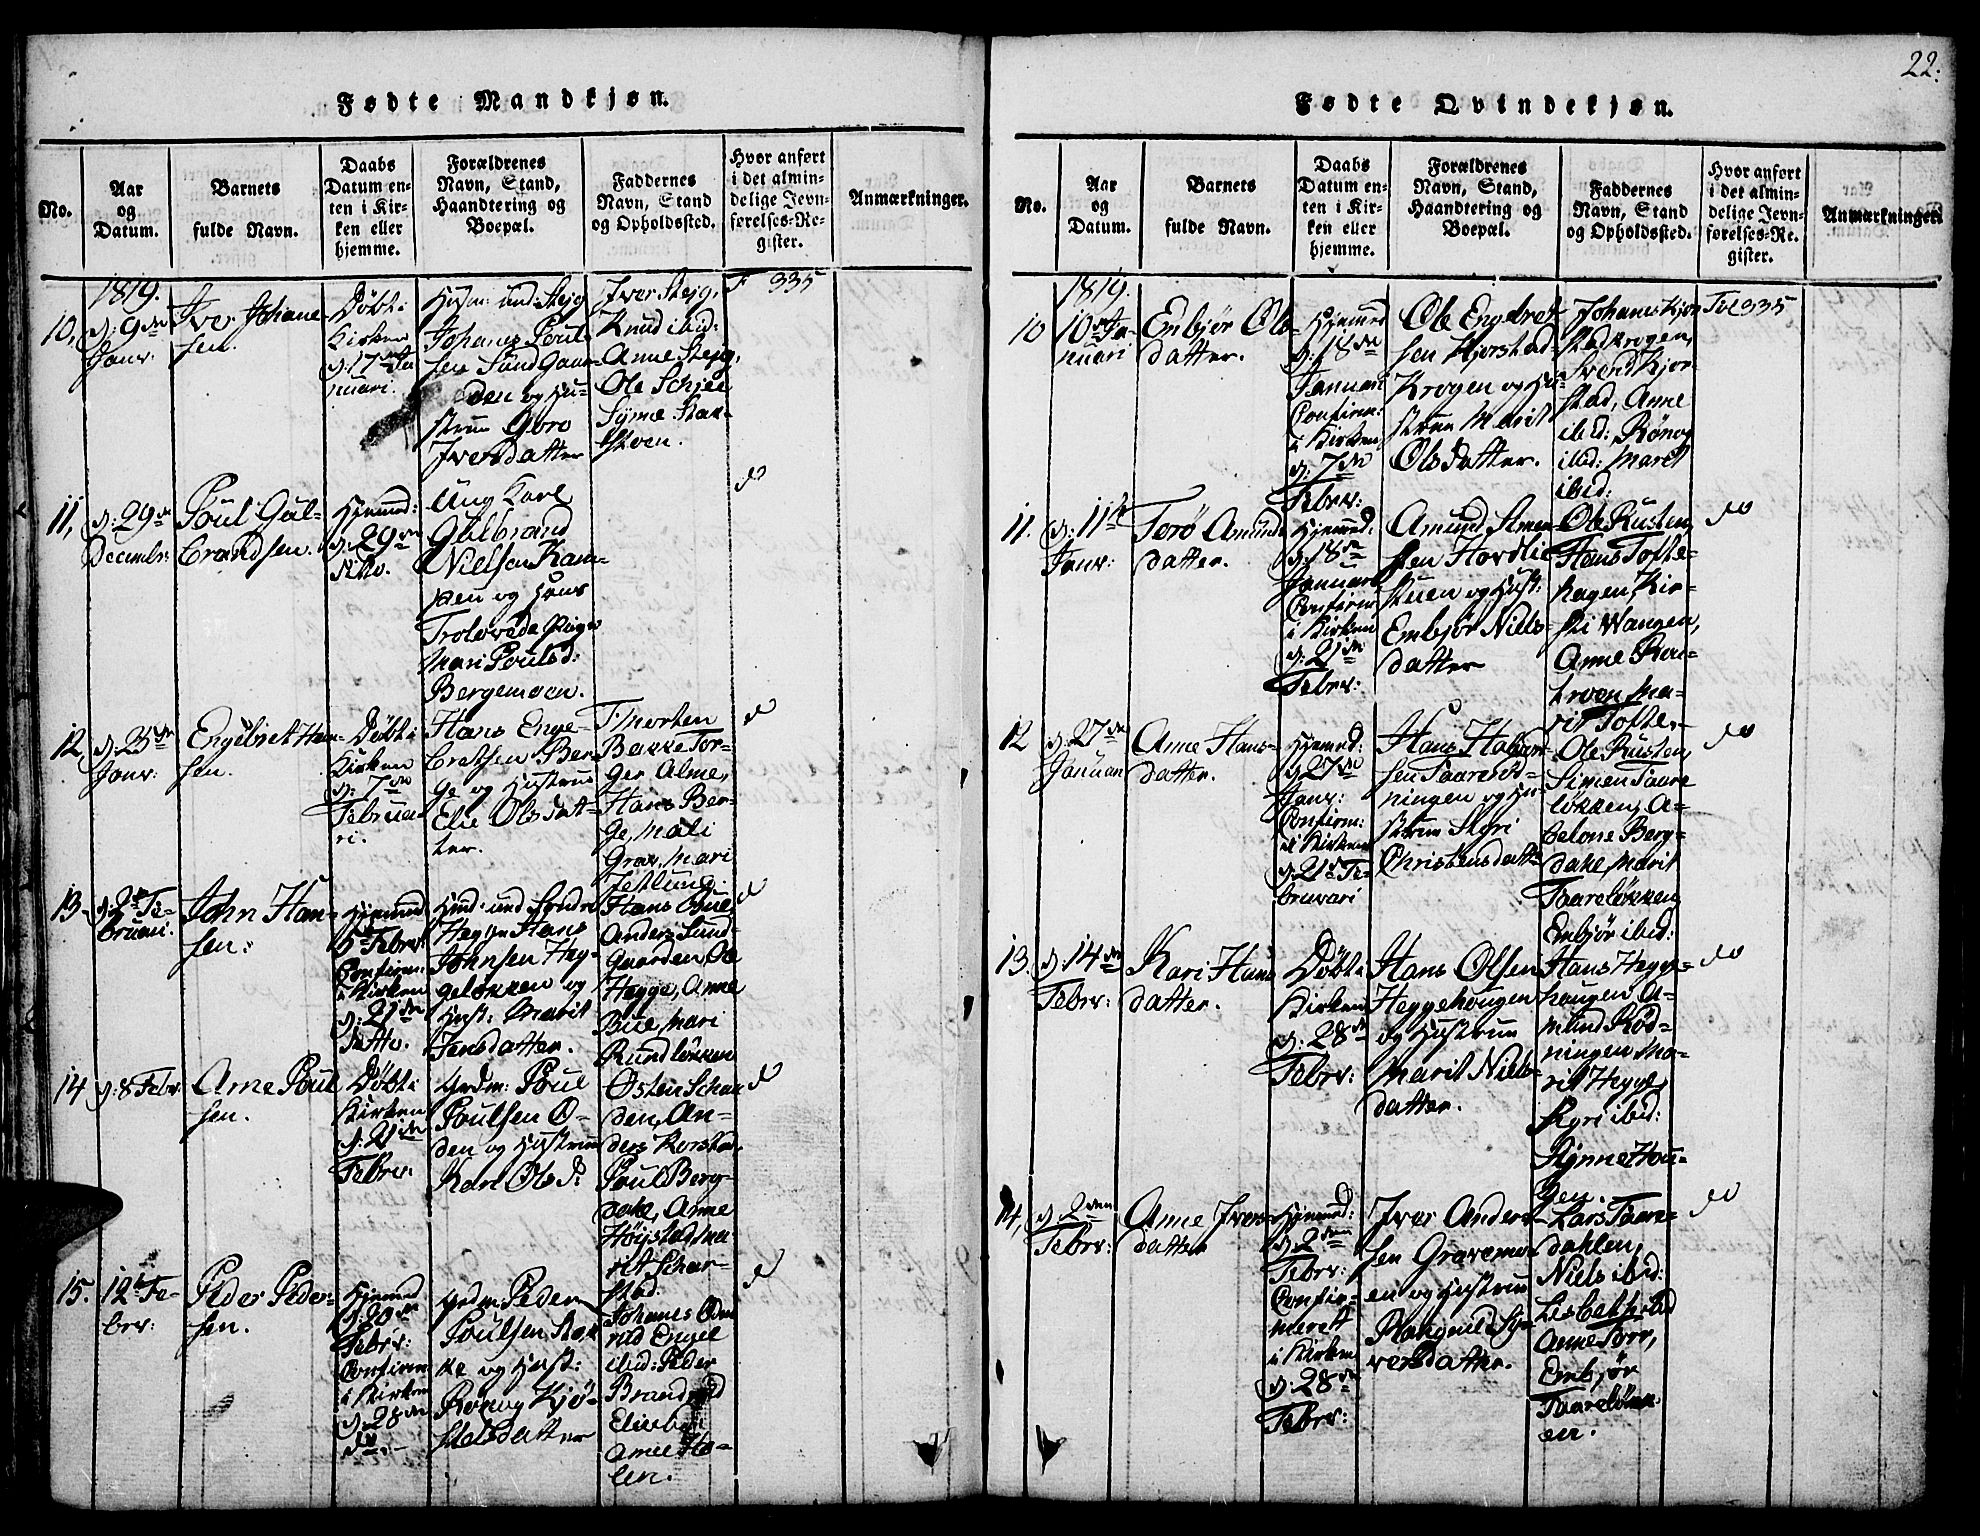 22.
Fødte Mandkjøn.
No.
Aar
og
Datum.
Barnets
fulde Navn.
Daabs
Datum en-
ten i Kir-
ken eller
hjemme.
Forældrenes
Navn, Stand,
Haandtering og
Boepæl.
Faddernes
Navn, Stand
og Opholdssted.
Hvor anført
i det almin-
delige Jevn-
førelses-Re-
gister.
Anmærkninger.
1819.
10,
d: 9de
Janr:
Iver Johane-
sen.
Døbt i
Kirken
d: 17de Ja-
nuari.
Johans Poul-
sen Sundgaar-
den og Hu-
strue Goro
Iversdatter
Iver Stejg,
Knud ibid:
Anne Stejg,
Ole Schjee
335
11,
d: 29de
Decembr:
Poul Gul-
brandsen.
Hjemmed:
d: 29de
Ung Karl
Gulbrand
Nielsen
og Hans
Trolovede Pige
Mari Poulsd:
Bergemoen.
do
12,
d: 25de
Janr:
Engebret Han-
sen.
Døbt i
Kirken
d: 7de
Februa-
ri.
Hans Enge-
bretsen Ber-
ge og Hustrue
Elie Olsdat-
ter.
Morten
Bakke Tor-
ger Alme,
Hans Ber-
ge, Mali
Grav, Mari
do
13.
d: 2de Fe-
bruari.
John Han-
sen.
Hjemmed
5te Febr:
Confirm:
i Kirken
d: 21de
Ditto.
Hegge Hans
Johnsen Heg-
geløkken og
Hust: Marit
Jensdatter.
Hans Bue
Anders Sund-
gaarden, Ole
Hegge, Anne
Bue, Mari
Rundløkken
do
14
d: 8 Febr:
Arne Poul
sen.
Døbt i
Kirken
d: 21de
Febr:
Grdm: Poul
Poulsen O-
den og Hustrue
Kari Olsd:
Østen Schau-
den, An-
ders Korstad
Poul Berg-
dale, Anne
Høystad, Ma
rit Schar-
stad.
do
15.
12te Fe-
brr:
Peder Peder-
sen.
Hjemmed
d: 20de
Febr:
Confirm
i Kirken
d: 28de
do.
Grdm: Peder
Poulsen
og Hust:
Ronnog Kjø-
stelsdatter
Johanes
ibid: Peder
Anne Ho-
len.
do
Fødte Qvindekjøn.
No.
Aar
og
Datum.
Barnets
fulde Navn.
Daabs
Datum en-
ten i Kir-
ken eller
hjemme.
Forældrenes
Navn, Stand,
Haandtering og
Boepæl.
Faddernes
Navn, Stand
og Opholdssted.
Hvor anført
i det almin-
delige Jevn-
førelses-Re-
gister.
Anmærkninger.
1819.
10
10de Ja-
nuari
Embjør Ols-
datter.
Hjemmed
d: 18de
Januari
Confirm:
i Kirken
d: 7de
Febrr:
Ole Engebret-
sen Kjorstad-
Krogen og Hu-
strue Marit
Olsdatter.
Johans Kjor
stadkrogen,
Svend Kjor-
stad, Anne
ibid: Rønog
ibid: Maret
ibid:
Fol 335
11.
d: 11te
Janr:
Torø Amunds
datter.
Hjemmed:
d: 18de
Januari
Confirm
i Kirken
d: 21de
Febrr:
Amund Simen-
sen Hovdlie-
stuen og Hust:
Embjør Niels-
datter
Ole Rusten,
Hans Tofte-
hagen, Kir-
sti Wangen,
Anne
Ma-
rit Tofte,
do
12
d: 27de
Januari
Anne Hans-
datter.
Hjemmed:
d: 27de
Janr:
Confirm:
i Kirken
d: 21de Fe-
bruari
Hans
sen
ningen og Hu-
strue Skyri
Christensdatt
Ole Rusten,
Simen Taare
løkken, A-
belone Berg-
dale, Marit
Taareløkken
Embjør ibid:
do
13.
d: 14de
Febrr:
Kari Hans
datter.
Døbt i
Kirken
d: 28de
Febrr:
Hans Olsen
Heggehougen
og Hustrue
Marit Niels-
datter.
Hans Hegge-
hougen A-
mund Rød-
ningen Ma-
rit Hegge,
Skyri ibid:
Synne Hou-
gen.
do
14,
d: 2den
Febrr:
Anne Ivers-
datter
Hjemmed:
d: 2den
Febrr:
Confir-
meret
i Kirken
d: 28de
Febrr:
Iver Ander-
sen Gravemo-
en og Hustrue
Rangnild Sy-
versdatter.
Lars Taare-
dahlen,
Niels ibid:
Lisbeth ibid
Anne Torr,
Embjør
Taareløkk-
en.
do